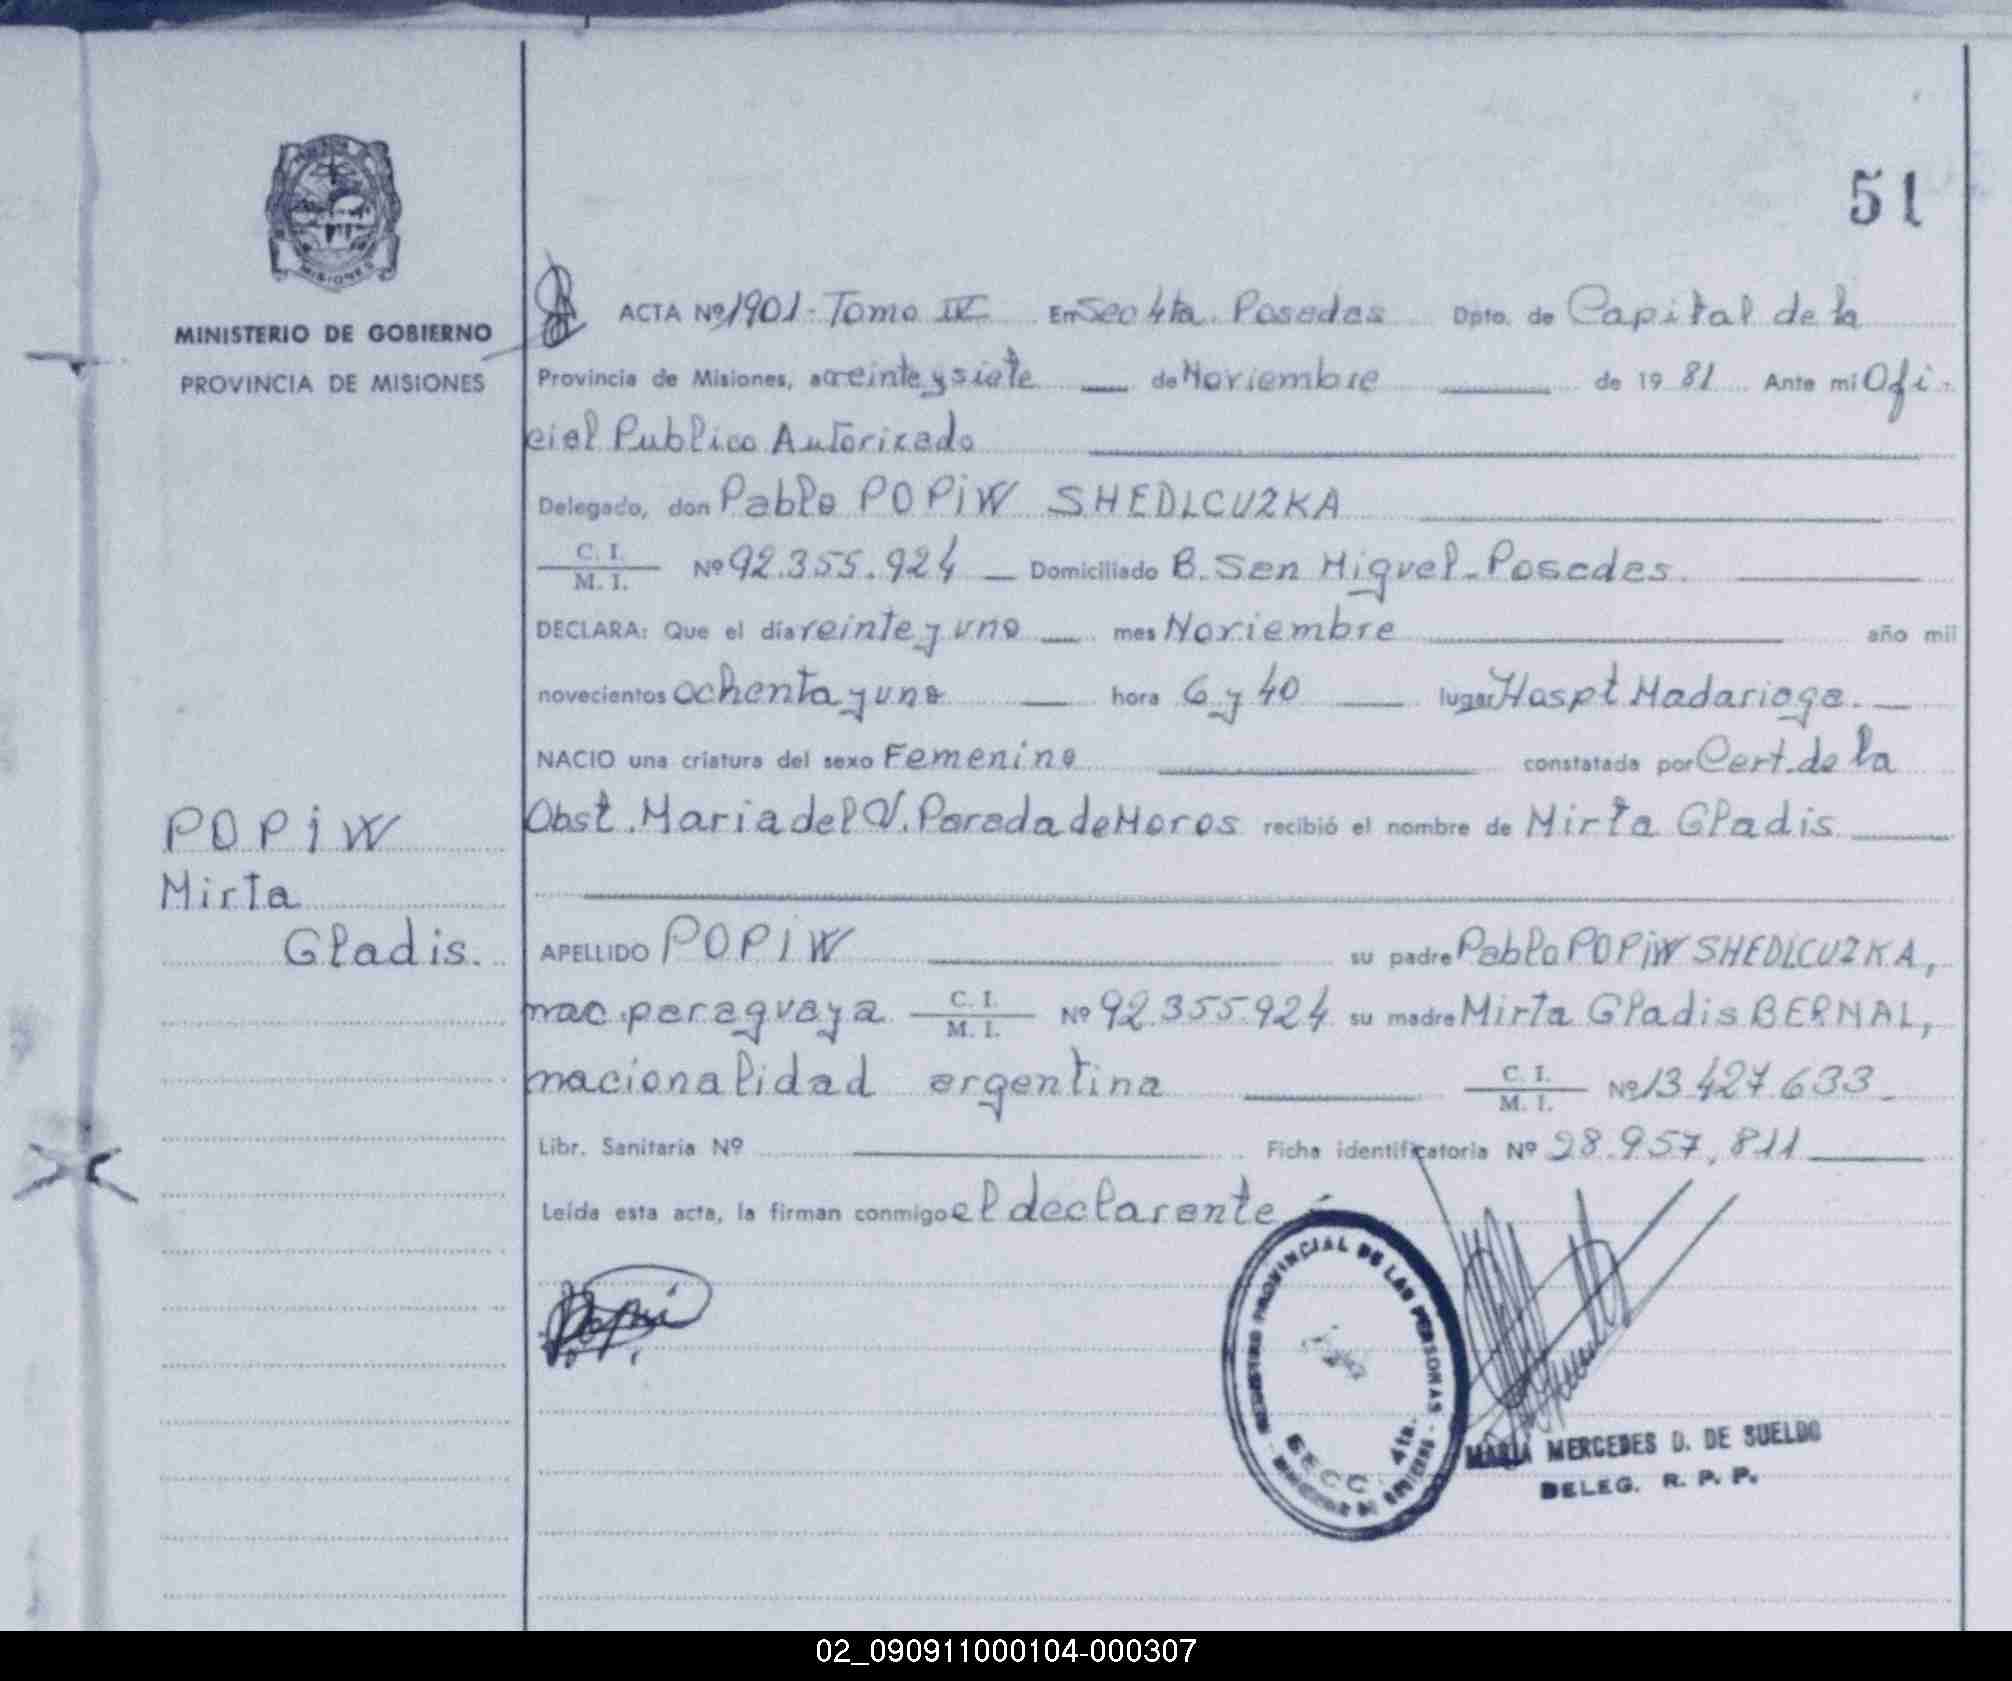 51
MISIONES
MINISTERIO DE GOBIERNO
PROVINCIA DE MISIONES
ACTA Nº 1901 - Tomo IV En Sec 4ta. Posadas Dpto. de Capital de la
Provincia de Misiones, a veinte y siete de Noviembre de 19 81 Ante mi Ofi-
cial Publico Autorizado
Delegado, don Pablo POPiW SHEDLCUZKA
C. I.
M. I. Nº 92.355.924 Domiciliado B. San Miguel - Posadas.
DECLARA: Que el día veinte y uno mes Noviembre año mil
novecientos ochenta y uno hora 6 y 40 lugar Hospt Madariaga.
NACIO una criatura del sexo Femenino constatada por Cert. de la
Obst. Maria del V. Parada de Moros recibió el nombre de Mirta Gladis
POPiW
Mirta
Gladis.
APELLIDO POPIW su padre Pablo POPiW SHEDLCUZKA,
nac. paraguaya C. I. M. I. Nº 92.355.924 su madre Mirta Gladis BERNAL,
nacionalidad argentina C. I. M. I. Nº 13.427.633
Libr. Sanitaria Nº Ficha identificatoria Nº 28.957,811
Leída esta acta, la firman conmigo el declarante
REGISTRO PROVINCIAL DE LAS PERSONAS
SECC. 4ta.
MARIA MERCEDES D. DE SUELDO
DELEG. R. P. P.
02_090911000104-000307